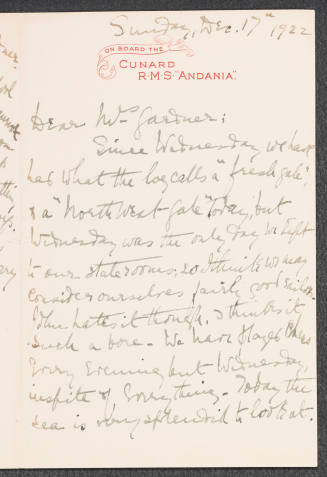 Sunday, Dec. 17th 1922
ON BOARD THE
CUNARD
R·M·S·"ANDANIA".
Dear Mrs Gardner:
Since Wednesday we have
had what the log calls a "fresh gale",
& a "North West gale" today, but
Wednesday was the only day we kept
to our staterooms, so I think we may
consider ourselves fairly good sailors.
John hates it though, & thinks it
such a bore. We have played Chess
Every Evening but Wednesday,
inspite of Everything. Today the
sea is very splendid to look at.